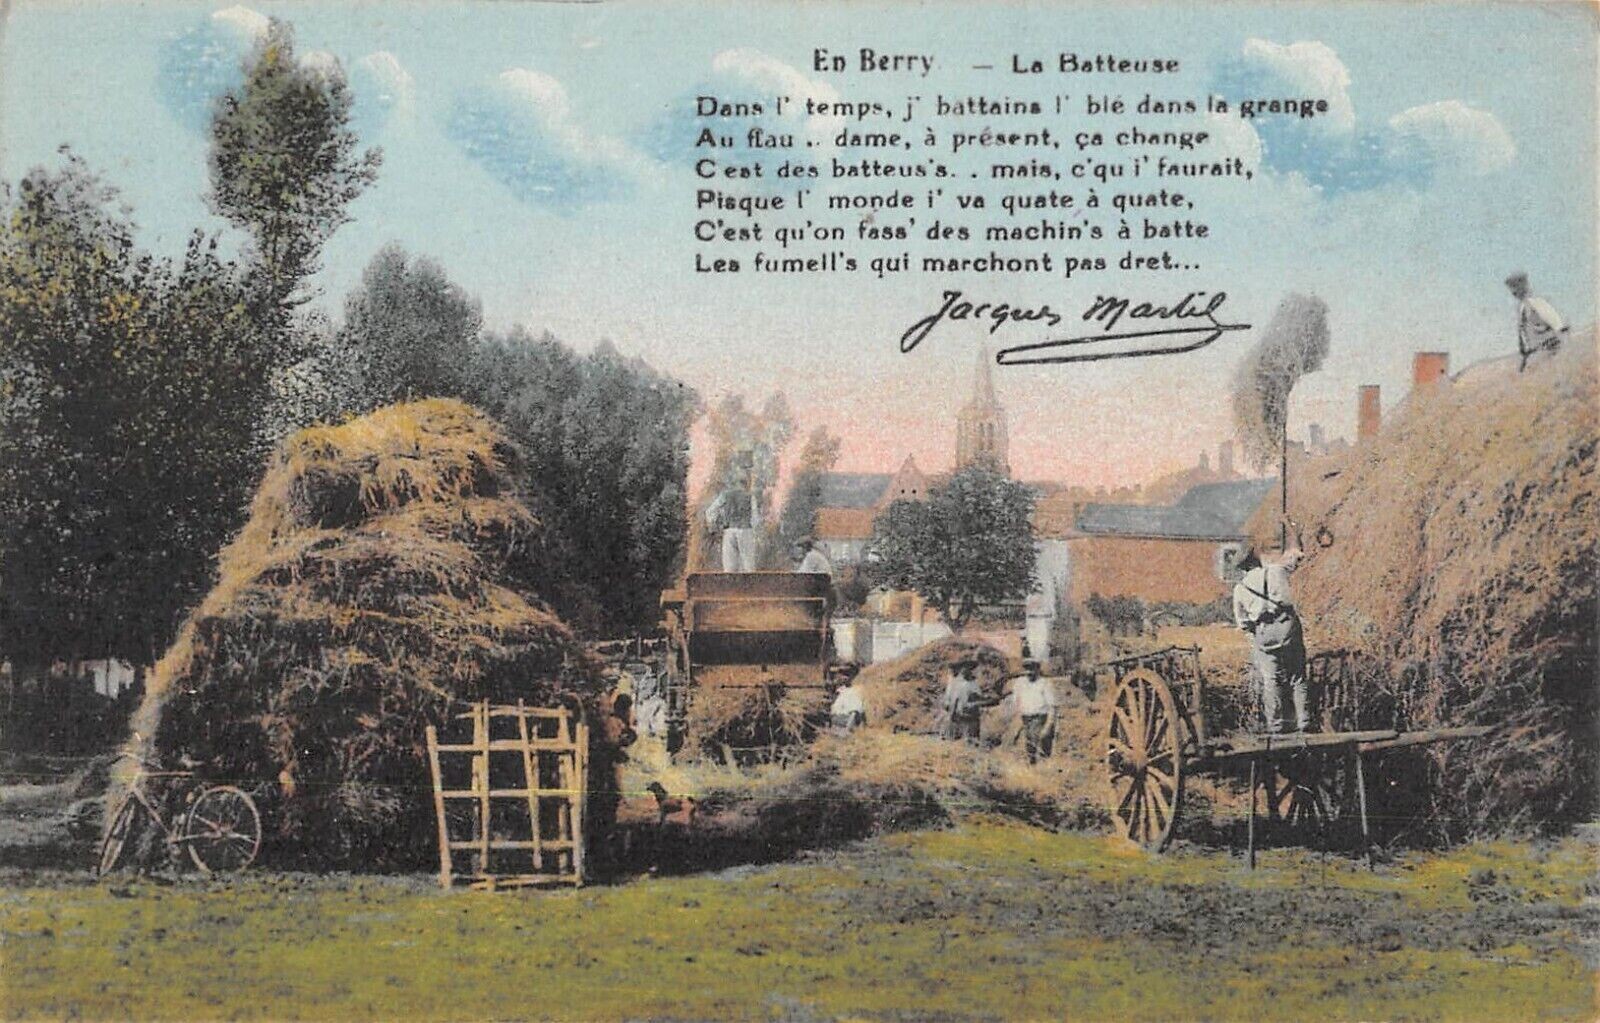 En Berry. — La Batteuse
Dans l' temps, j' battains l' blé dans la grange
Au flau .. dame, à présent, ça change
C'est des batteus's. . mais, c'qu i' faurait,
Pisque l' monde i' va quate à quate,
C'est qu'on fass' des machin's à batte
Les fumell's qui marchont pas dret...
Jacques Martel